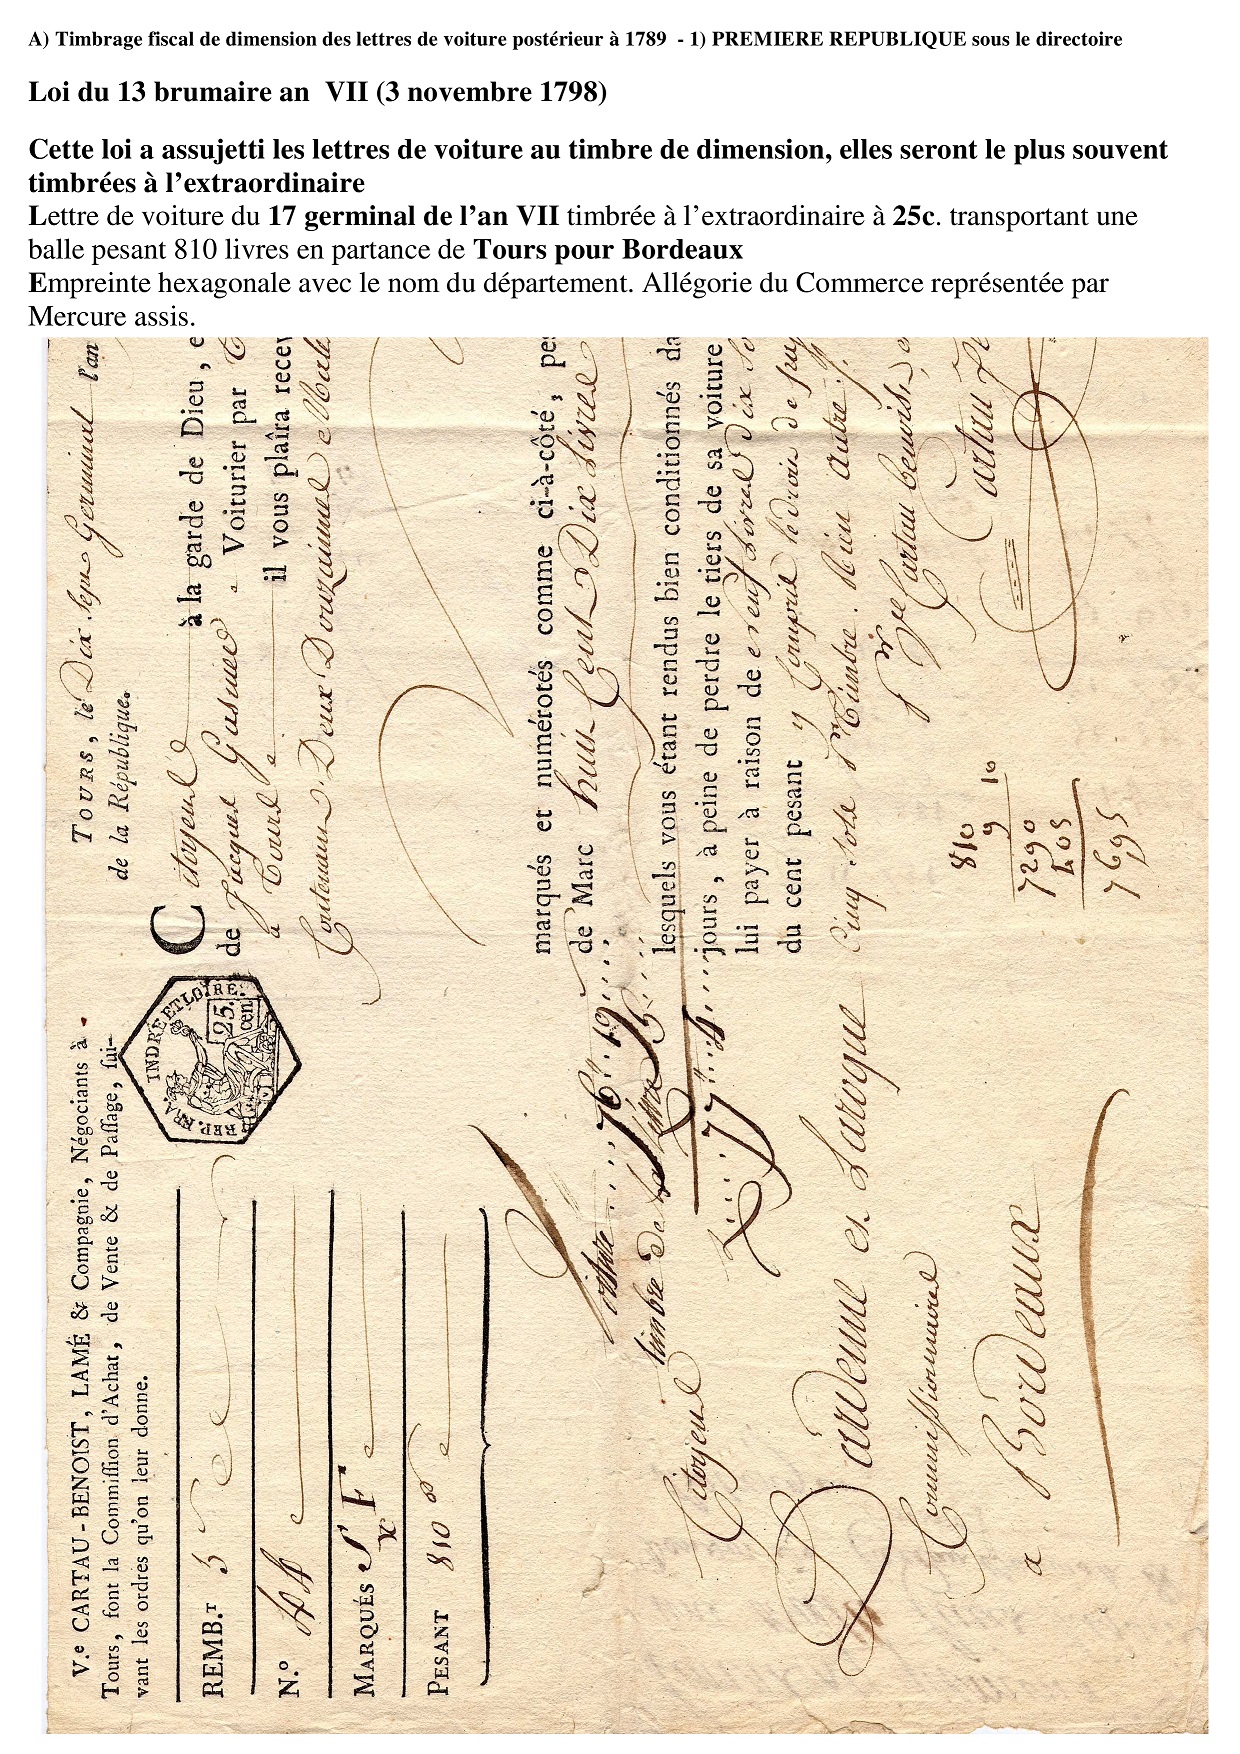 A) Timbrage fiscal de dimension des lettres de voiture postérieur à 1789 - 1) PREMIERE REPUBLIQUE sous le directoire
Loi du 13 brumaire an VII (3 novembre 1798)
Cette loi a assujetti les lettres de voiture au timbre de dimension, elles seront le plus souvent
timbrées à l’extraordinaire
Lettre de voiture du 17 germinal de l’an VII timbrée à l’extraordinaire à 25c. transportant une
balle pesant 810 livres en partance de Tours pour Bordeaux
Empreinte hexagonale avec le nom du département. Allégorie du Commerce représentée par
Mercure assis.
V.e CARTAU-BENOIST, LAMÉ & Compagnie, Négociants à
Tours, font la Commiſſion d'Achat, de Vente & de Paſſage, ſui-
vant les ordres qu'on leur donne.
REMB.T
N.o 44
MARQUÉS
PESANT 810
REP. FRA. INDRE ET LOIRE.
25.
cen.
TOURS, le Dix Sept Germinal l'an
de la République.
Citoyens à la garde de Dieu, e
de Jacques Voiturier par
à Tours il vous plaîra recev
Contenant Deux Douzaines
marqués et numérotés comme ci-à-côté, pe
de Marc huit Cent Dix Livres
lesquels vous étant rendus bien conditionnés da
jours, à peine de perdre le tiers de sa voiture
lui payer à raison de neuf livres dix
du cent pesant y Compris le droit de
Cinq Sols pr Timbre. Rien autre
Cartau benoist
Cartau
810
9 10
7290
405
7695
voiture 76 19
timbre de la lettre 5
77 4
Citoyens
Dardenne et Laroque
Commissionnaires
a Bordeaux